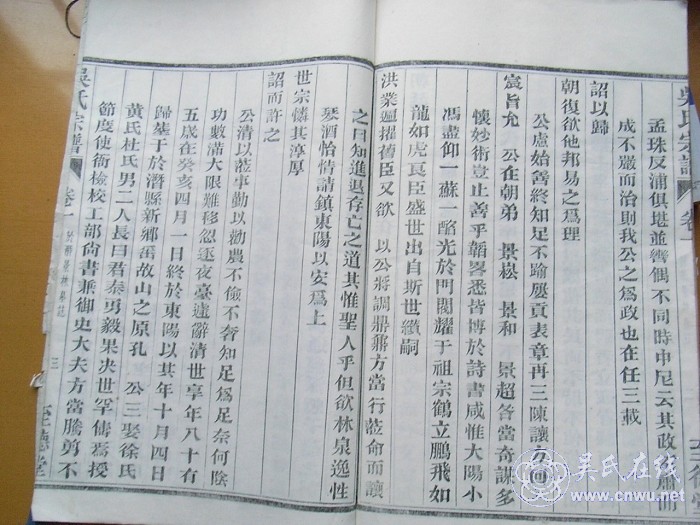 吳氏宗譜 卷一
孟珠反浦俱堪並齊偶不同時仲尼云其政不肅而
成不嚴而治則我公之爲政也在任三載
詔以歸
朝復欲他邦易之爲理
公慮始善終知足不踰屢貢表章再三陳讓方回
宸旨允 公在朝弟 景崧 景和 景超咨當奇謀多
懷妙術豈止善乎韜畧悉皆博於詩書咸惟大陽小
馮盡仰一蘇一酪光於門閥耀于祖宗鶴立鵬飛如
龍如虎良臣盛世出自斯世續嗣
洪業遍擢舊臣又欲 以公將調鼎鼐方當行蒞命而讓
之曰知進退存亡之道其惟聖人乎但欲林泉逸性
琴酒怡情請鎮東陽以安爲上
世宗憐其淳厚
詔而許之
公清以蒞事勤以勸農不儉不奢知足爲足奈何陰
功數滿大限難移忽逐夜臺遽辭清世享年八十有
五歲在癸亥四月一日終於東陽以其年十月四日
歸墓于於潛縣新鄉嵒故山之原孔 公三娶徐氏
黃氏杜氏男二人長曰君泰勇毅果決世罕儔焉授
節度使衙檢校工部尙書兼御史大夫方當騰剪不
吳氏宗譜 卷一 三 至德堂
吴氏在线
www.cnwu.net